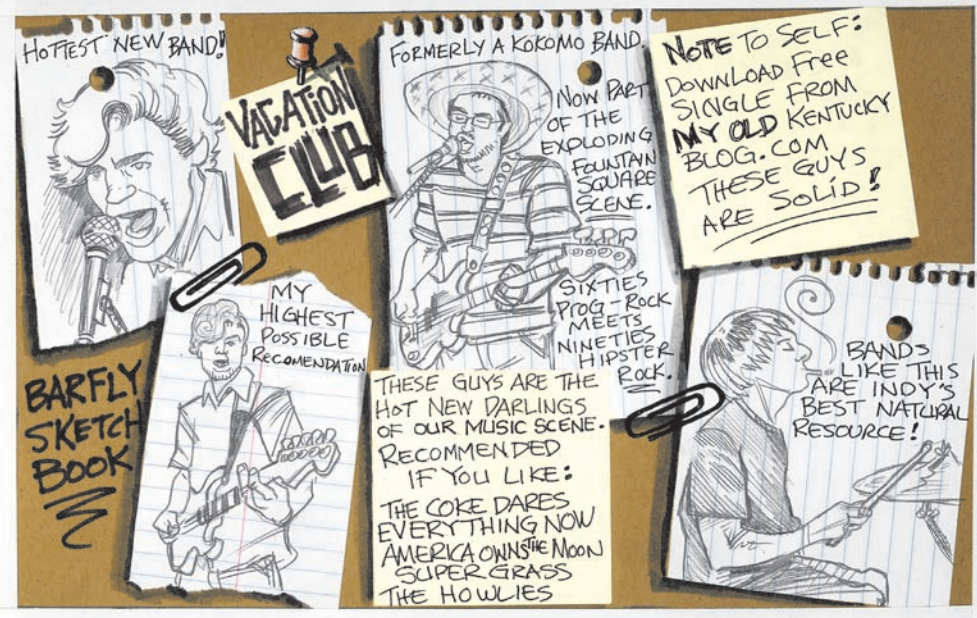 HOTTEST NEW BAND!
VACATION
CLUB
FORMERLY A KOKOMO BAND.
NOW PART
OF THE
EXPLODING
FOUNTAIN
SQUARE
SCENE.
SIXTIES
PROG-ROCK
MEETS
NINETIES
HIPSTER
ROCK.
NOTE TO SELF:
DOWNLOAD FREE
SINGLE FROM
MY OLD KENTUCKY
BLOG.COM
THESE GUYS
ARE SOLID!
BARFLY
SKETCH
BOOK
MY
HIGHEST
POSSIBLE
RECOMENDATION
THESE GUYS ARE THE
HOT NEW DARLINGS
OF OUR MUSIC SCENE.
RECOMMENDED
IF YOU LIKE:
THE COKE DARES
EVERYTHING NOW
AMERICA OWNS THE MOON
SUPER GRASS
THE HOWLIES
BANDS
LIKE THIS
ARE INDY'S
BEST NATURAL
RESOURCE!